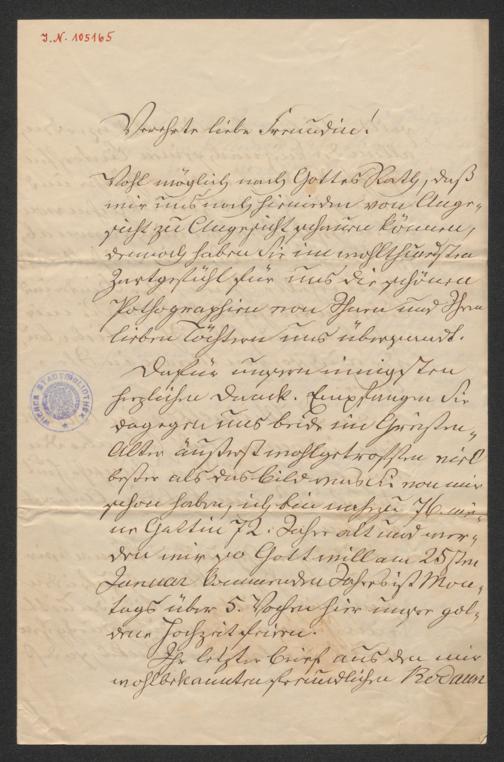 J.N. 105165
Verehrte liebe Freundin!
Wohl möglich nach Gottes Rath, daß
wir uns noch hienieden von Ange-
sicht zu Angesicht schauen können,
dennoch haben Sie im wohlthuendsten
Zartgefühl für uns die schönen
Pothographien von Ihnen und Ihren
lieben Töchtern uns übersandt.
Dafür unsern innigsten
herzlichen Dannk. Empfangen Sie
dagegen uns beide im Greisen-
Alter äußerst wohlgetroffen viel
besser als das Bild was Sie von mir
schon haben, ich bin nahezu 76 mei-
ne Gattin 72. Jahre alt und wer-
den wir so Gott will am 25sten
Januar kommenden Jahres ist Mon-
tags über 5. Wochen hier unsre gol-
dene Hochzeit feiern.
Ihr letzter Brief aus den mir
wohlbekannten freundlichen Rodaun
WIENER STADTBIBLIOTHEK